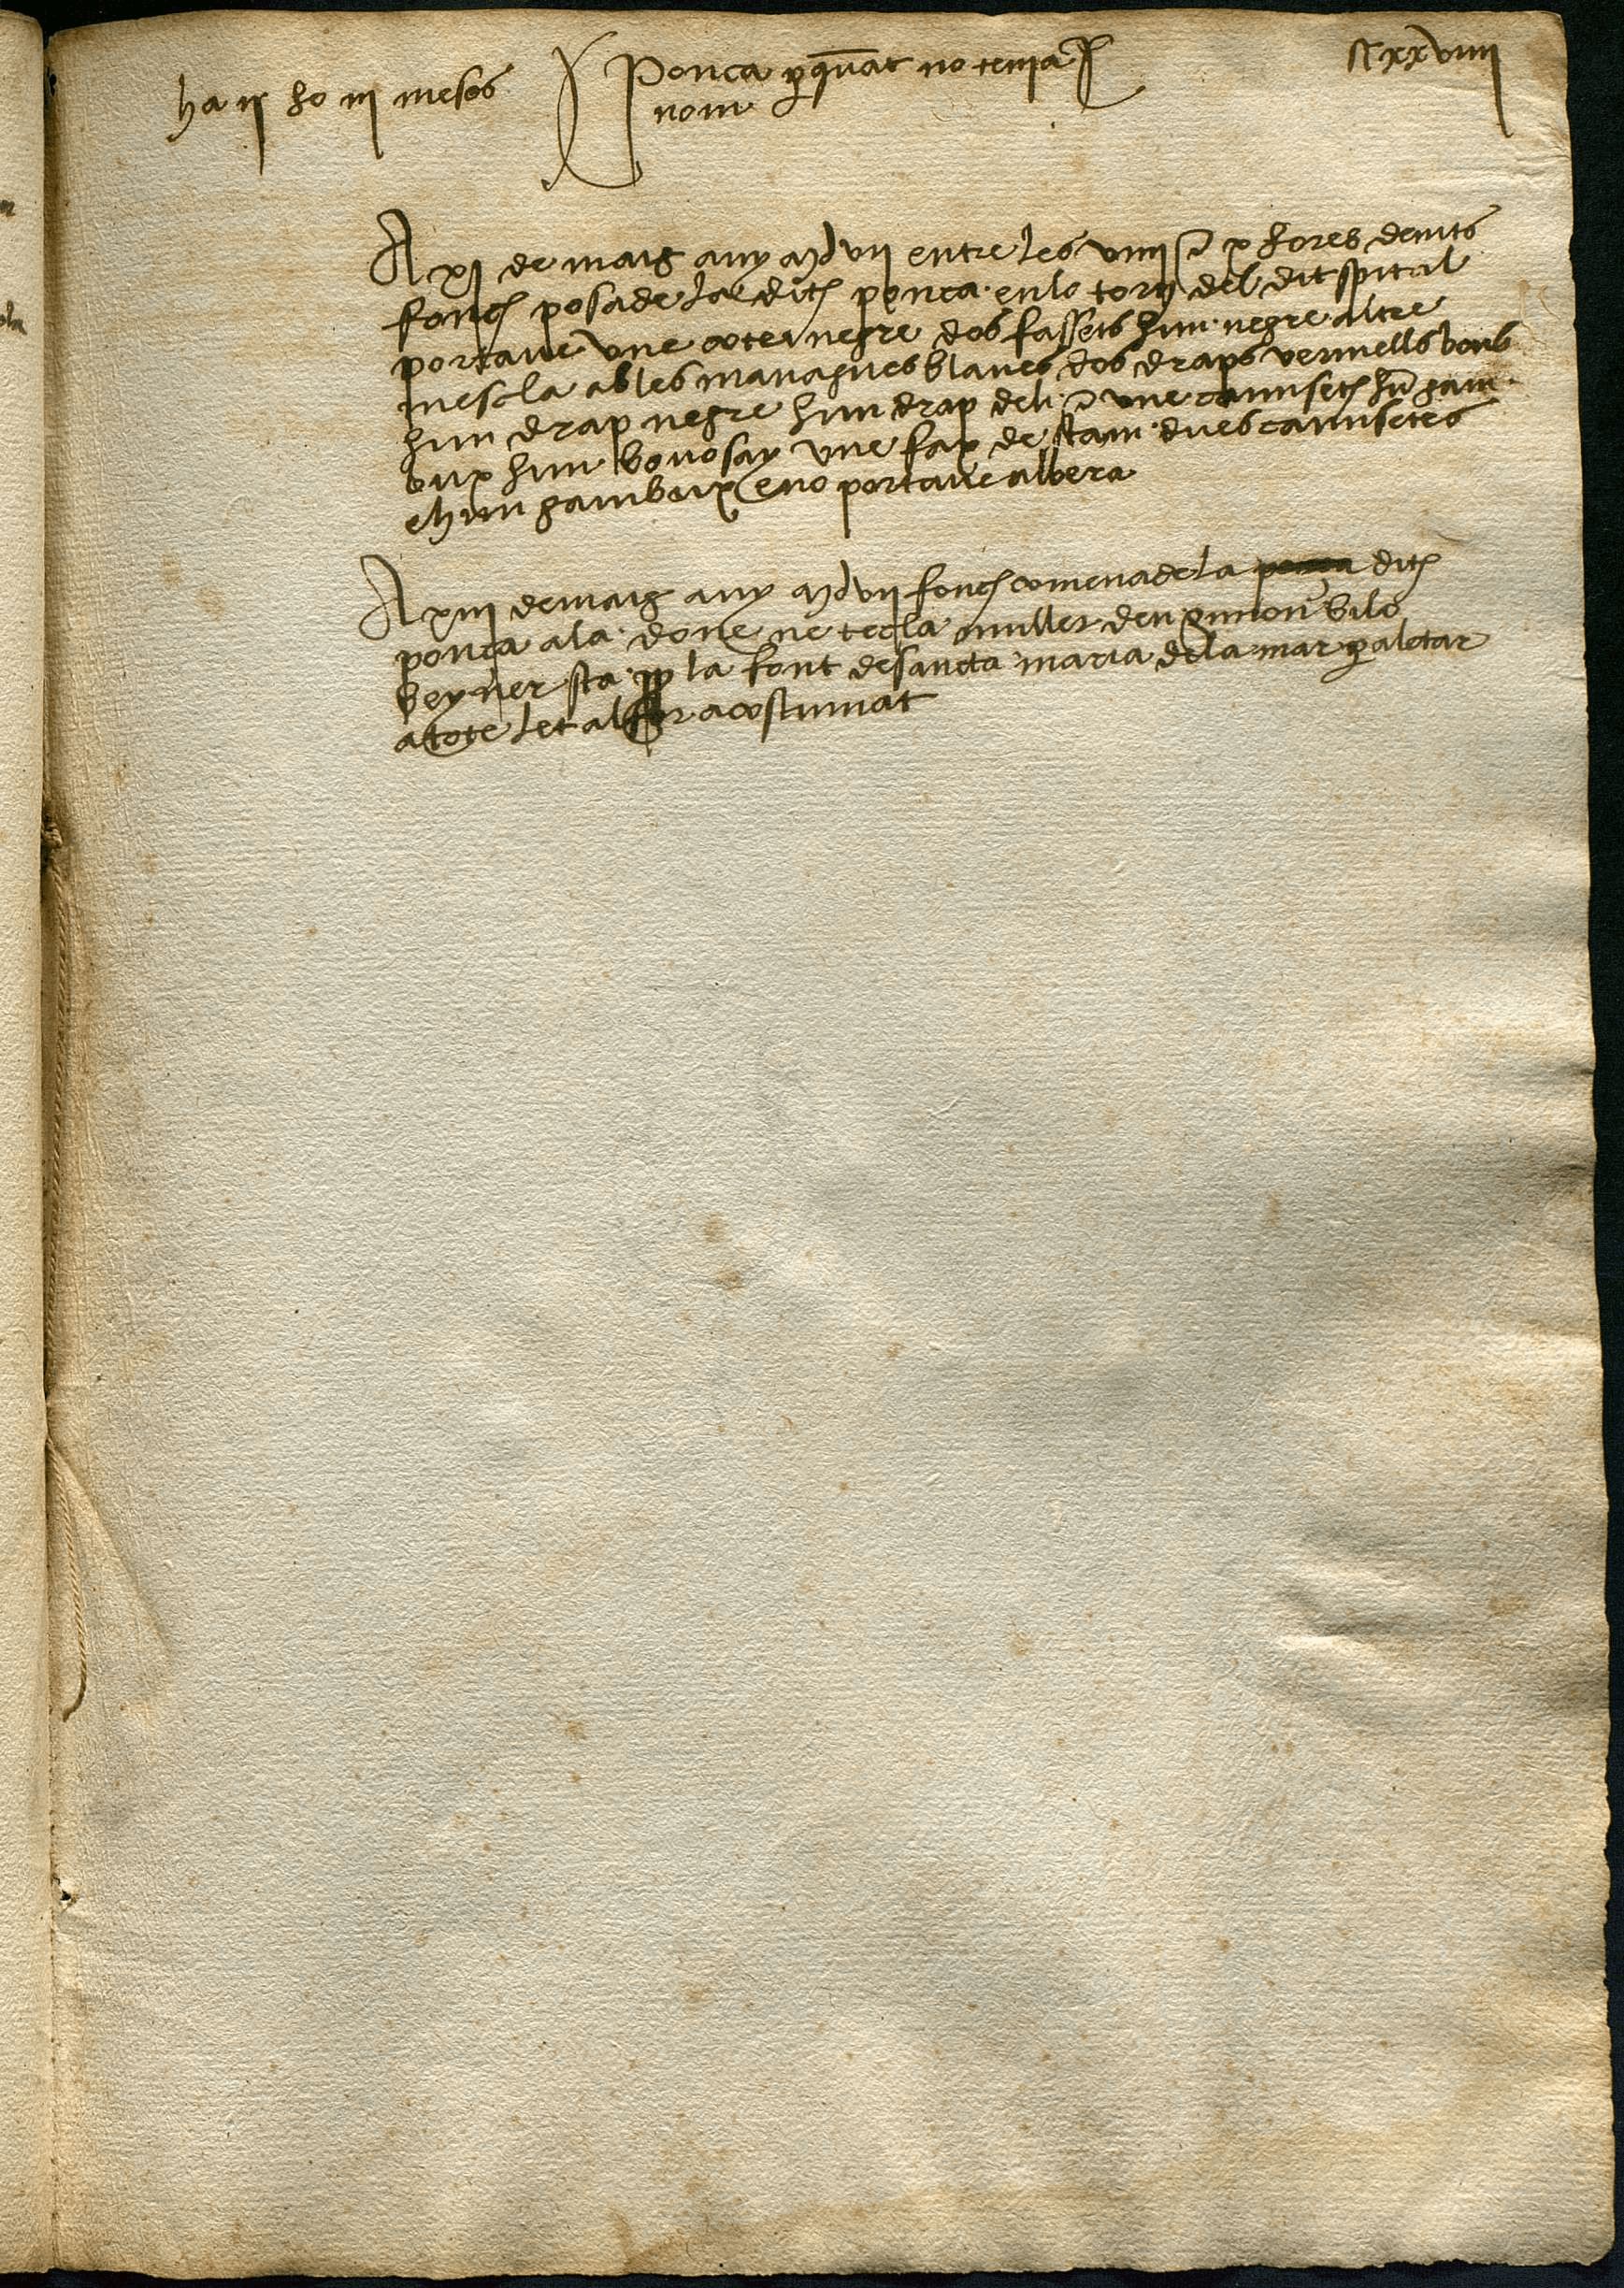 ha ij ho iij mesos
Ponça perq̄nat no tenia
nom
CLxxxviiii
A xj de maig any mdvij entre les viiij e x hores de nits
fonch posade la dita ponça en lo torn del dit spital
portave une cotei negre dos fassets hun negre altre
mescla ab les manegues blaves dos draps vermells bons
hun drap negre hun drap de li e une camiseta hū gam
bux hun bonosay une fax de stam dues camisetes
e hun gambux e no portave albera
A xiij de maig any mdvij fonch comenade la dita
ponça a la done ne tecla muller den simon bilo
beyner sta per la font de sancta maria de la mar per aletar
a tote let al for acostumat